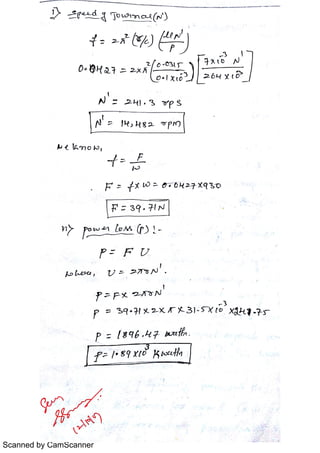 i) speed of Journal (N)
f = 2π² (r/c) (μN'/P)
0.0427 = 2×π² (0.0315/0.1×10⁻³) [7×10⁻³ N'/264×10³]
N' = 241.3 rps
N' = 14,482 rpm
We know,
f = F/W
F = f×W = 0.0427×930
F = 39.71 N
ii) power loss (P) :-
P = F U
where, U = 2πrN'.
P = F× 2πrN'
P = 39.71×2×π×31.5×10⁻³×241.75
P = 1896.47 watts.
P = 1.89×10³ Kwatts
Scanned by CamScanner